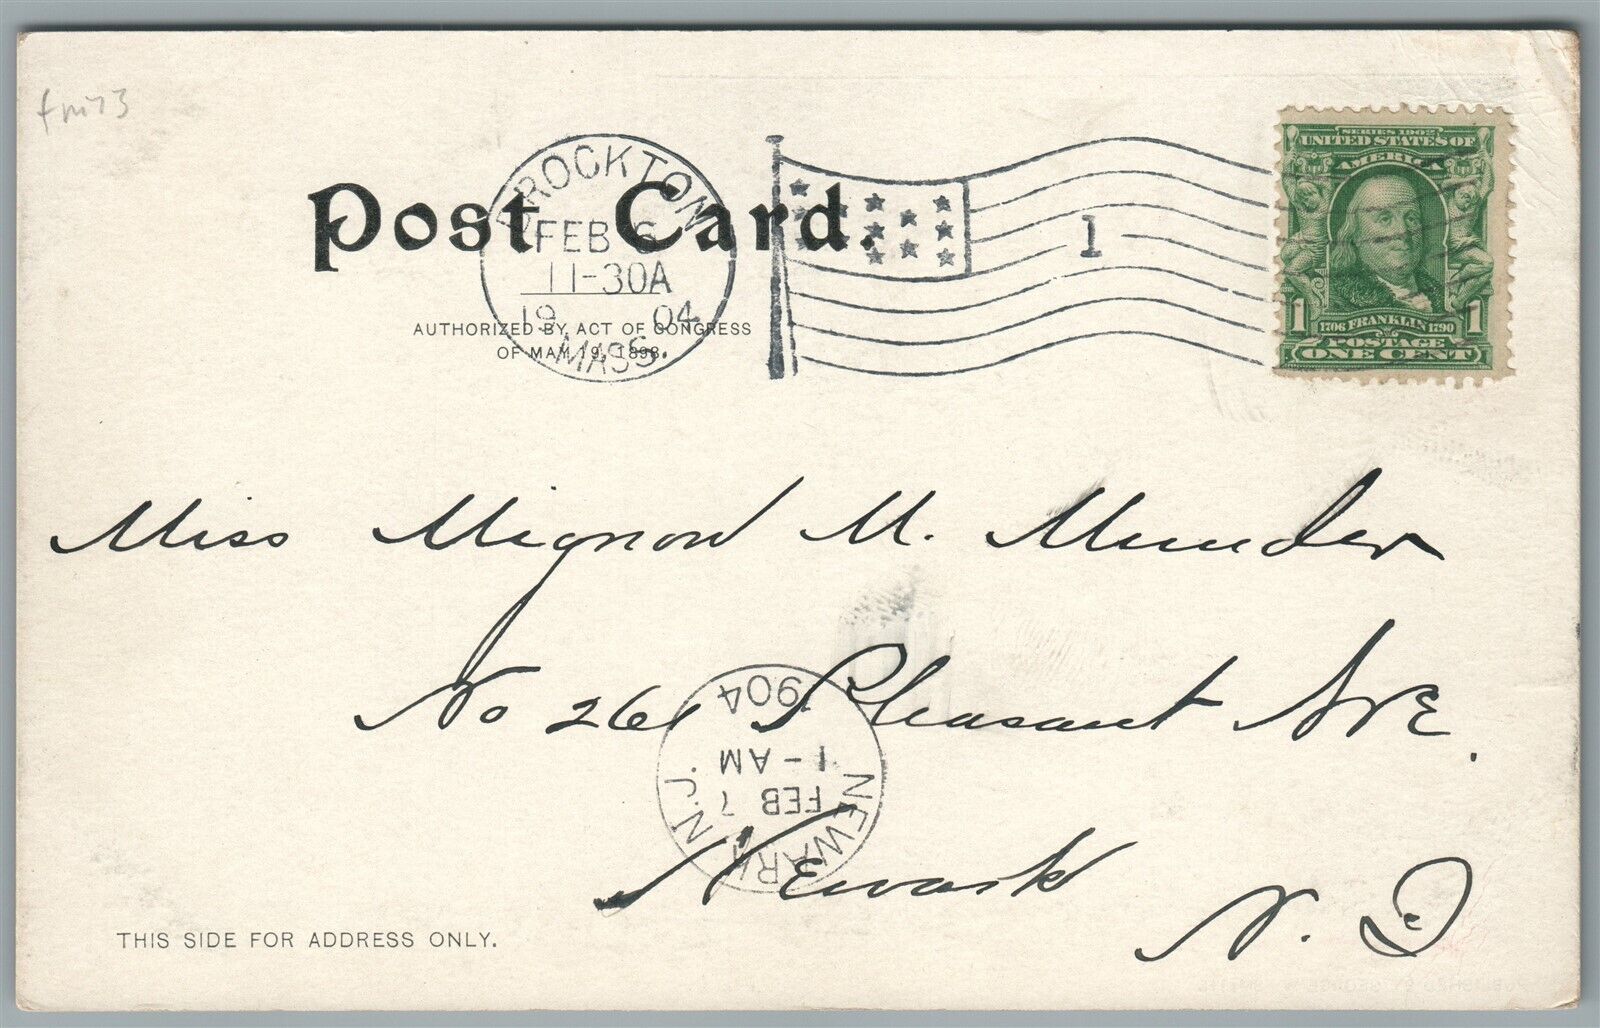 fm73
BROCKTON
FEB 6
11-30A
19 04
MASS.
1
Post Card.
AUTHORIZED BY ACT OF CONGRESS
OF MAY 19, 1898.
SERIES 1902
UNITED STATES OF
AMERICA
1 1706 FRANKLIN 1790 1
POSTAGE
ONE CENT
Miss Mignon M. Munder
No 261 Pleasant AVE.
Newark
N. J
NEWARK N.J.
FEB 7
1-AM
1904
THIS SIDE FOR ADDRESS ONLY.